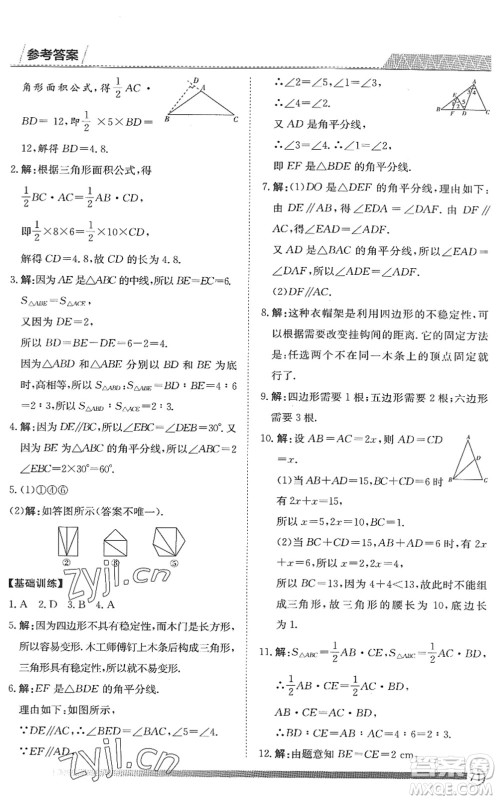 参考答案
角形面积公式,得 1/2 AC·
BD=12,即 1/2×5×BD=
12,解得 BD=4.8.
2.解:根据三角形面积公式,得
1/2 BC·AC=1/2 AB·CD,
即 1/2×8×6=1/2×10×CD,
解得 CD=4.8,所以高 CD 的长为 4.8.
3.解:因为 AE 是△ABC 的中线,所以 BE=CE=6.
S△ABE=S△ACE.
又因为 DE=2,
所以 BD=BE-DE=6-2=4.
因为△ABD 和△ABE 分别以 BD 和 BE 为底时,高相同,所以 S△ABD∶S△ABE=BD∶BE=4∶6
=2∶3.
4.解:因为 DE∥BC,所以∠BCE=∠DEC=30°.
因为 CE 是△ABC 的角平分线,
所以∠ACB=2∠BCE=2×30°=60°.
5.(1)①④⑥
(2)解:如答图所示(答案不唯一).
② ③ ⑤
【基础训练】
1.A 2.D 3.B 4.A
5.解:因为四边形不具有稳定性,而木门是长方形,所以容易变形.木工师傅钉上木条后构成三角形,三角形具有稳定性,所以不易变形.
6.解:EF 是△BDE 的角平分线.
理由如下:如图,
∵DE∥AC,∴∠BED=∠BAC,∠5=∠3.
∵EF∥AD,
∴∠2=∠1,∠4=∠5=∠3,
∴∠2=∠4.
又∵AD 是角平分线,
∴∠1=∠3,∴∠2=∠4,
即 EF 是△BDE 的角平分线.
7.解:(1)DO 是△DEF 的角平分线.理由如下:
∵DE∥AB,∴∠EDA=∠DAF.∵DF∥AC,
∴∠EAD=∠ADF.
又∵AD 是△BAC 的角平分线,
∴∠DAF=∠EAD,∴∠EDA=∠ADF,
∴DO 是△DEF 的角平分线.
(2)结论正确.
8.解:这种衣帽架是利用四边形的不稳定性,可以根据需要改变挂钩间的距离.它的固定方法是:任意相邻两个不在同一木条上的顶点固定就行了.
9.解:四边形需要 1 根;五边形需要 2 根,六边形需要 3 根.
10.解:设 AB=AC=2x,则 AD=CD
=x.
(1)当 AB+AD=12,BC+CD=6 时,
有 2x+x=12,
所以 x=4,2x=8,所以 BC=6-4=2.
(2)当 BC+CD=12,AB+AD=6 时,
有 2x+x=6,
所以 x=2,2x=4,所以 BC=10.
因为 4+4<10,所以不能构成三角形.
答:这个等腰三角形的腰长为 8,底边长为 2.
11.解:S△ABC=1/2 AB·CE,S△ABC=1/2 AC·BD,
∴1/2 AB·CE=1/2 AC·BD,
∴AB·CE=AC·BD,
∴BD/CE=AB/AC.
12.解:由题意知 BE=CE=2 cm,
zyjl.cn
zyjl.cn